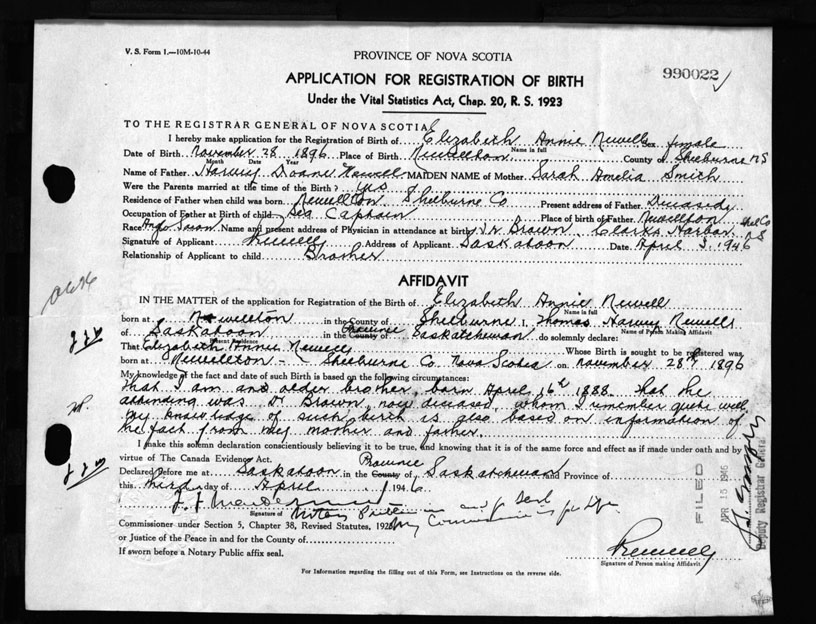 V. S. Form 1.—10M-10-44
PROVINCE OF NOVA SCOTIA
990022
APPLICATION FOR REGISTRATION OF BIRTH
Under the Vital Statistics Act, Chap. 20, R. S. 1923
TO THE REGISTRAR GENERAL OF NOVA SCOTIA
I hereby make application for the Registration of Birth of Elizabeth Annie Newell Sex female
Name in full
Date of Birth November 28 1896 Place of Birth Newellton County of Shelburne NS
Month Date Year
Name of Father Harvey Doane Newell MAIDEN NAME of Mother Sarah Amelia Smith
Were the Parents married at the time of the Birth? yes
Residence of Father when child was born Newellton Shelburne Co Present address of Father Deceased
Occupation of Father at Birth of child Sea Captain Place of birth of Father Newellton Shel Co
Race Anglo Saxon Name and present address of Physician in attendance at birth Dr Brown, Clarks Harbor NS
Signature of Applicant Address of Applicant Saskatoon Date April 3, 1946
Relationship of Applicant to child Brother
AFFIDAVIT
IN THE MATTER of the application for Registration of the Birth of Elizabeth Annie Newell
Name in full
born at Newellton in the County of Shelburne I, Thomas Harvey Newell
Name of Person Making Affidavit
of Saskatoon in the County Province of Saskatchewan do solemnly declare:
Present Residence
That Elizabeth Annie Newell Whose Birth is sought to be registered was
born at Newellton - Shelburne Co. Nova Scotia on November 28th 1896
My knowledge of the fact and date of such Birth is based on the following circumstances:
That I am and older brother, born April 16th 1888. That the
attending was Dr Brown, now diseased, whom I remember quite well.
My knowledge of such birth is also based on information of
the fact from my mother and father.
I make this solemn declaration conscientiously believing it to be true, and knowing that it is of the same force and effect as if made under oath and by
virtue of The Canada Evidence Act.
Declared before me at Saskatoon in the County Province of Saskatchewan and Province of
this third day of April 1946
Signature of Notary Public in and for Sask
Commissioner under Section 5, Chapter 38, Revised Statutes, 1923 My Commission is for life.
or Justice of the Peace in and for the County of
If sworn before a Notary Public affix seal.
Signature of Person making Affidavit
For Information regarding the filling out of this Form, see Instructions on the reverse side.
FILED
APR 15 1946
Deputy Registrar General